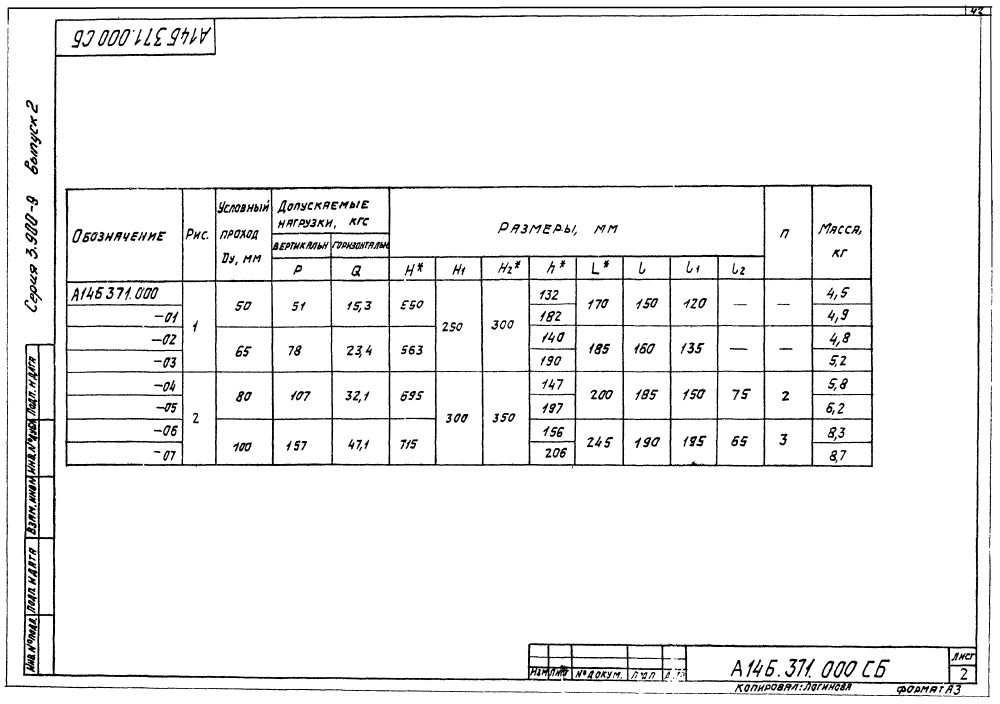 42
А14Б 371.000 СБ
Серия 3.900-9 выпуск 2
Обозначение Рис. Условный проход Dу, мм Допускаемые нагрузки, кгс Размеры, мм n Масса, кг
вертикальн горизонтальн
P Q H* H1 H2* h* L* l l1 l2
А14Б 371.000 1 50 51 15,3 550 250 300 132 170 150 120 — — 4,5
-01 182 4,9
-02 65 78 23,4 563 140 185 160 135 — — 4,8
-03 190 5,2
-04 2 80 107 32,1 695 300 350 147 200 185 150 75 2 5,8
-05 197 6,2
-06 100 157 47,1 715 156 245 190 195 65 3 8,3
-07 206 8,7
Инв. № подл. Подп. и дата Взам. инв. № Инв. № дубл. Подп. и дата
Изм. Лист № докум. Подп. Дата
А14Б.371.000 СБ
Лист
2
Копировал: Логинова Формат А3